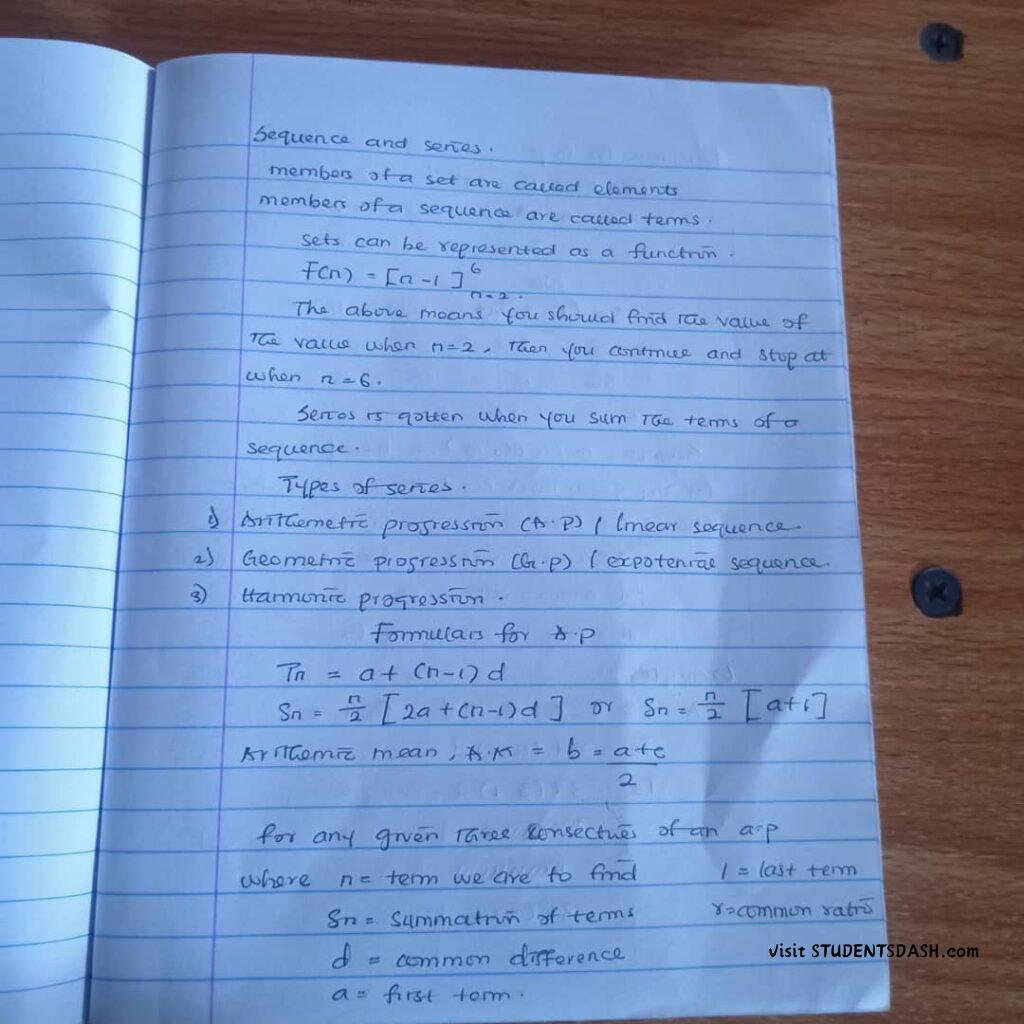 Sequence and series.
members of a set are called elements
members of a sequence are called terms.
Sets can be represented as a function.
F(n) = [n-1]⁶ₙ₌₂.
The above means you should find the value of
the value when n=2, then you continue and stop at
when n=6.
Series is gotten when you sum the terms of a
sequence.
Types of series.
1) Arithemetic progression (A.P) / linear sequence.
2) Geometric progression (G.P) / expotenial sequence.
3) Harmonic progression.
Formulars for A.P
Tn = a+(n-1)d
Sn = n/2 [2a+(n-1)d] or Sn = n/2 [a+l]
Arithemic mean, A.M = b = a+c/2
for any given three consectues of an a.p
where n= term we are to find l = last term
Sn= summation of terms r=common ratio
d = common difference
a= first term.
visit STUDENTSDASH.com